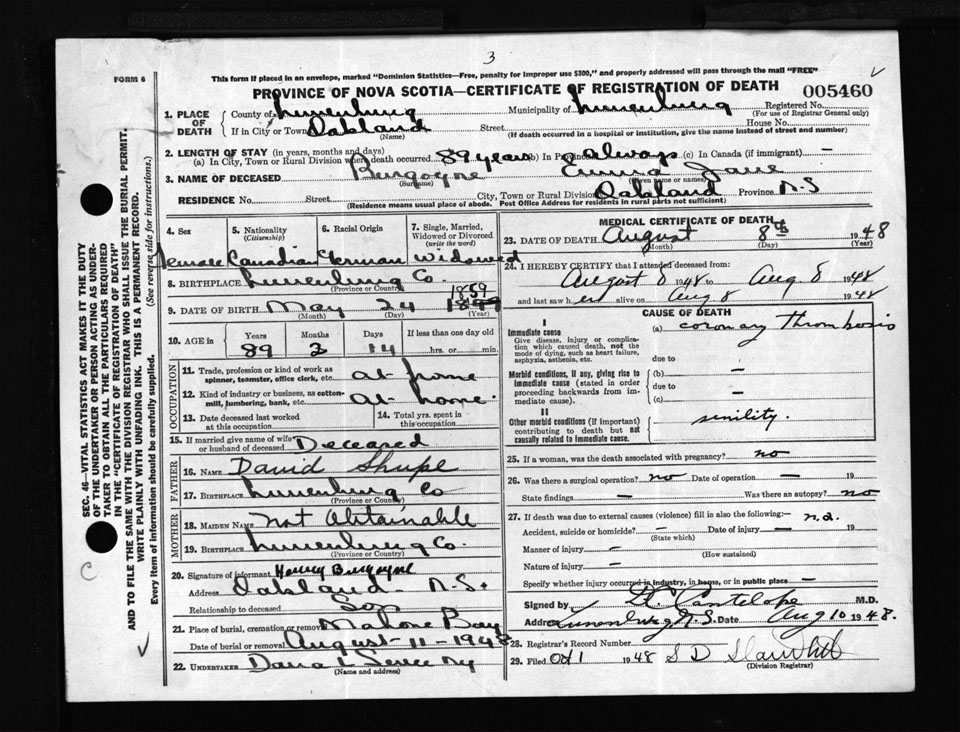 3
FORM 6
This form if placed in an envelope, marked "Dominion Statistics—Free, penalty for improper use $300," and properly addressed will pass through the mail "FREE"
PROVINCE OF NOVA SCOTIA—CERTIFICATE OF REGISTRATION OF DEATH 005460
1. PLACE OF DEATH
County of Lunenburg Municipality of Lunenburg Registered No.
(For use of Registrar General only)
If in City or Town Oakland Street House No.
(Name) (If death occurred in a hospital or institution, give the name instead of street and number)
2. LENGTH OF STAY (in years, months and days)
(a) In City, Town or Rural Division where death occurred 89 years (b) In Province always (c) In Canada (if immigrant) —
3. NAME OF DECEASED Burgoyne Emma Jane
(Surname) (Given name or names)
RESIDENCE No. Street City, Town or Rural Division Oakland Province N-S
(Residence means usual place of abode. Post Office Address for residents in rural parts not sufficient)
4. Sex 5. Nationality (Citizenship) 6. Racial Origin 7. Single, Married, Widowed or Divorced (write the word)
Female Canadian German Widowed
8. BIRTHPLACE Lunenburg Co.
(Province or Country)
1859
9. DATE OF BIRTH May 24
(Month) (Day) (Year)
10. AGE in Years Months Days If less than one day old
89 2 14 hrs. or min.
OCCUPATION
11. Trade, profession or kind of work as spinner, teamster, office clerk, etc. at home
12. Kind of industry or business, as cotton-mill, lumbering, bank, etc. at home.
13. Date deceased last worked at this occupation 14. Total yrs. spent in this occupation
15. If married give name of wife or husband of deceased Deceased
FATHER
16. NAME David Shupe
17. BIRTHPLACE Lunenburg Co
(Province or Country)
MOTHER
18. MAIDEN NAME Not Obtainable
19. BIRTHPLACE Lunenburg Co.
(Province or Country)
20. Signature of informant Henry Burgoyne
Address Oakland N-S.
Relationship to deceased Son
21. Place of burial, cremation or removal Mahone Bay
Date of burial or removal August-11-1948
22. UNDERTAKER
(Name and address)
MEDICAL CERTIFICATE OF DEATH
23. DATE OF DEATH August 8th 1948
(Month) (Day) (Year)
24. I HEREBY CERTIFY that I attended deceased from:
August 8 1948 to Aug 8 1948
and last saw her alive on Aug 8 1948
CAUSE OF DEATH
I
Immediate cause
Give disease, injury or complication which caused death, not the mode of dying, such as heart failure, asphyxia, asthenia, etc.
(a) coronary thrombosis
due to
Morbid conditions, if any, giving rise to immediate cause (stated in order proceeding backwards from immediate cause).
(b) —
due to
(c) —
II
Other morbid conditions (if important) contributing to death but not causally related to immediate cause.
senility.
25. If a woman, was the death associated with pregnancy? no
26. Was there a surgical operation? no Date of operation — 19
State findings — Was there an autopsy? no
27. If death was due to external causes (violence) fill in also the following:— n.a.
Accident, suicide or homicide? — Date of injury — 19
(State which)
Manner of injury —
(How sustained)
Nature of injury —
Specify whether injury occurred in industry, in home, or in public place —
Signed by Cantelope M.D.
Address Lunenburg N.S. Aug 10 1948.
28. Registrar's Record Number
29. Filed Oct 1 1948 S D
(Division Registrar)
SEC. 46—VITAL STATISTICS ACT MAKES IT THE DUTY
OF THE UNDERTAKER OR PERSON ACTING AS UNDER-
TAKER TO OBTAIN ALL THE PARTICULARS REQUIRED
IN THE "CERTIFICATE OF REGISTRATION OF DEATH"
AND TO FILE THE SAME WITH THE DIVISION REGISTRAR WHO SHALL ISSUE THE BURIAL PERMIT.
WRITE PLAINLY WITH UNFADING INK. THIS IS A PERMANENT RECORD.
Every item of information should be carefully supplied. (See reverse side for instructions.)
C